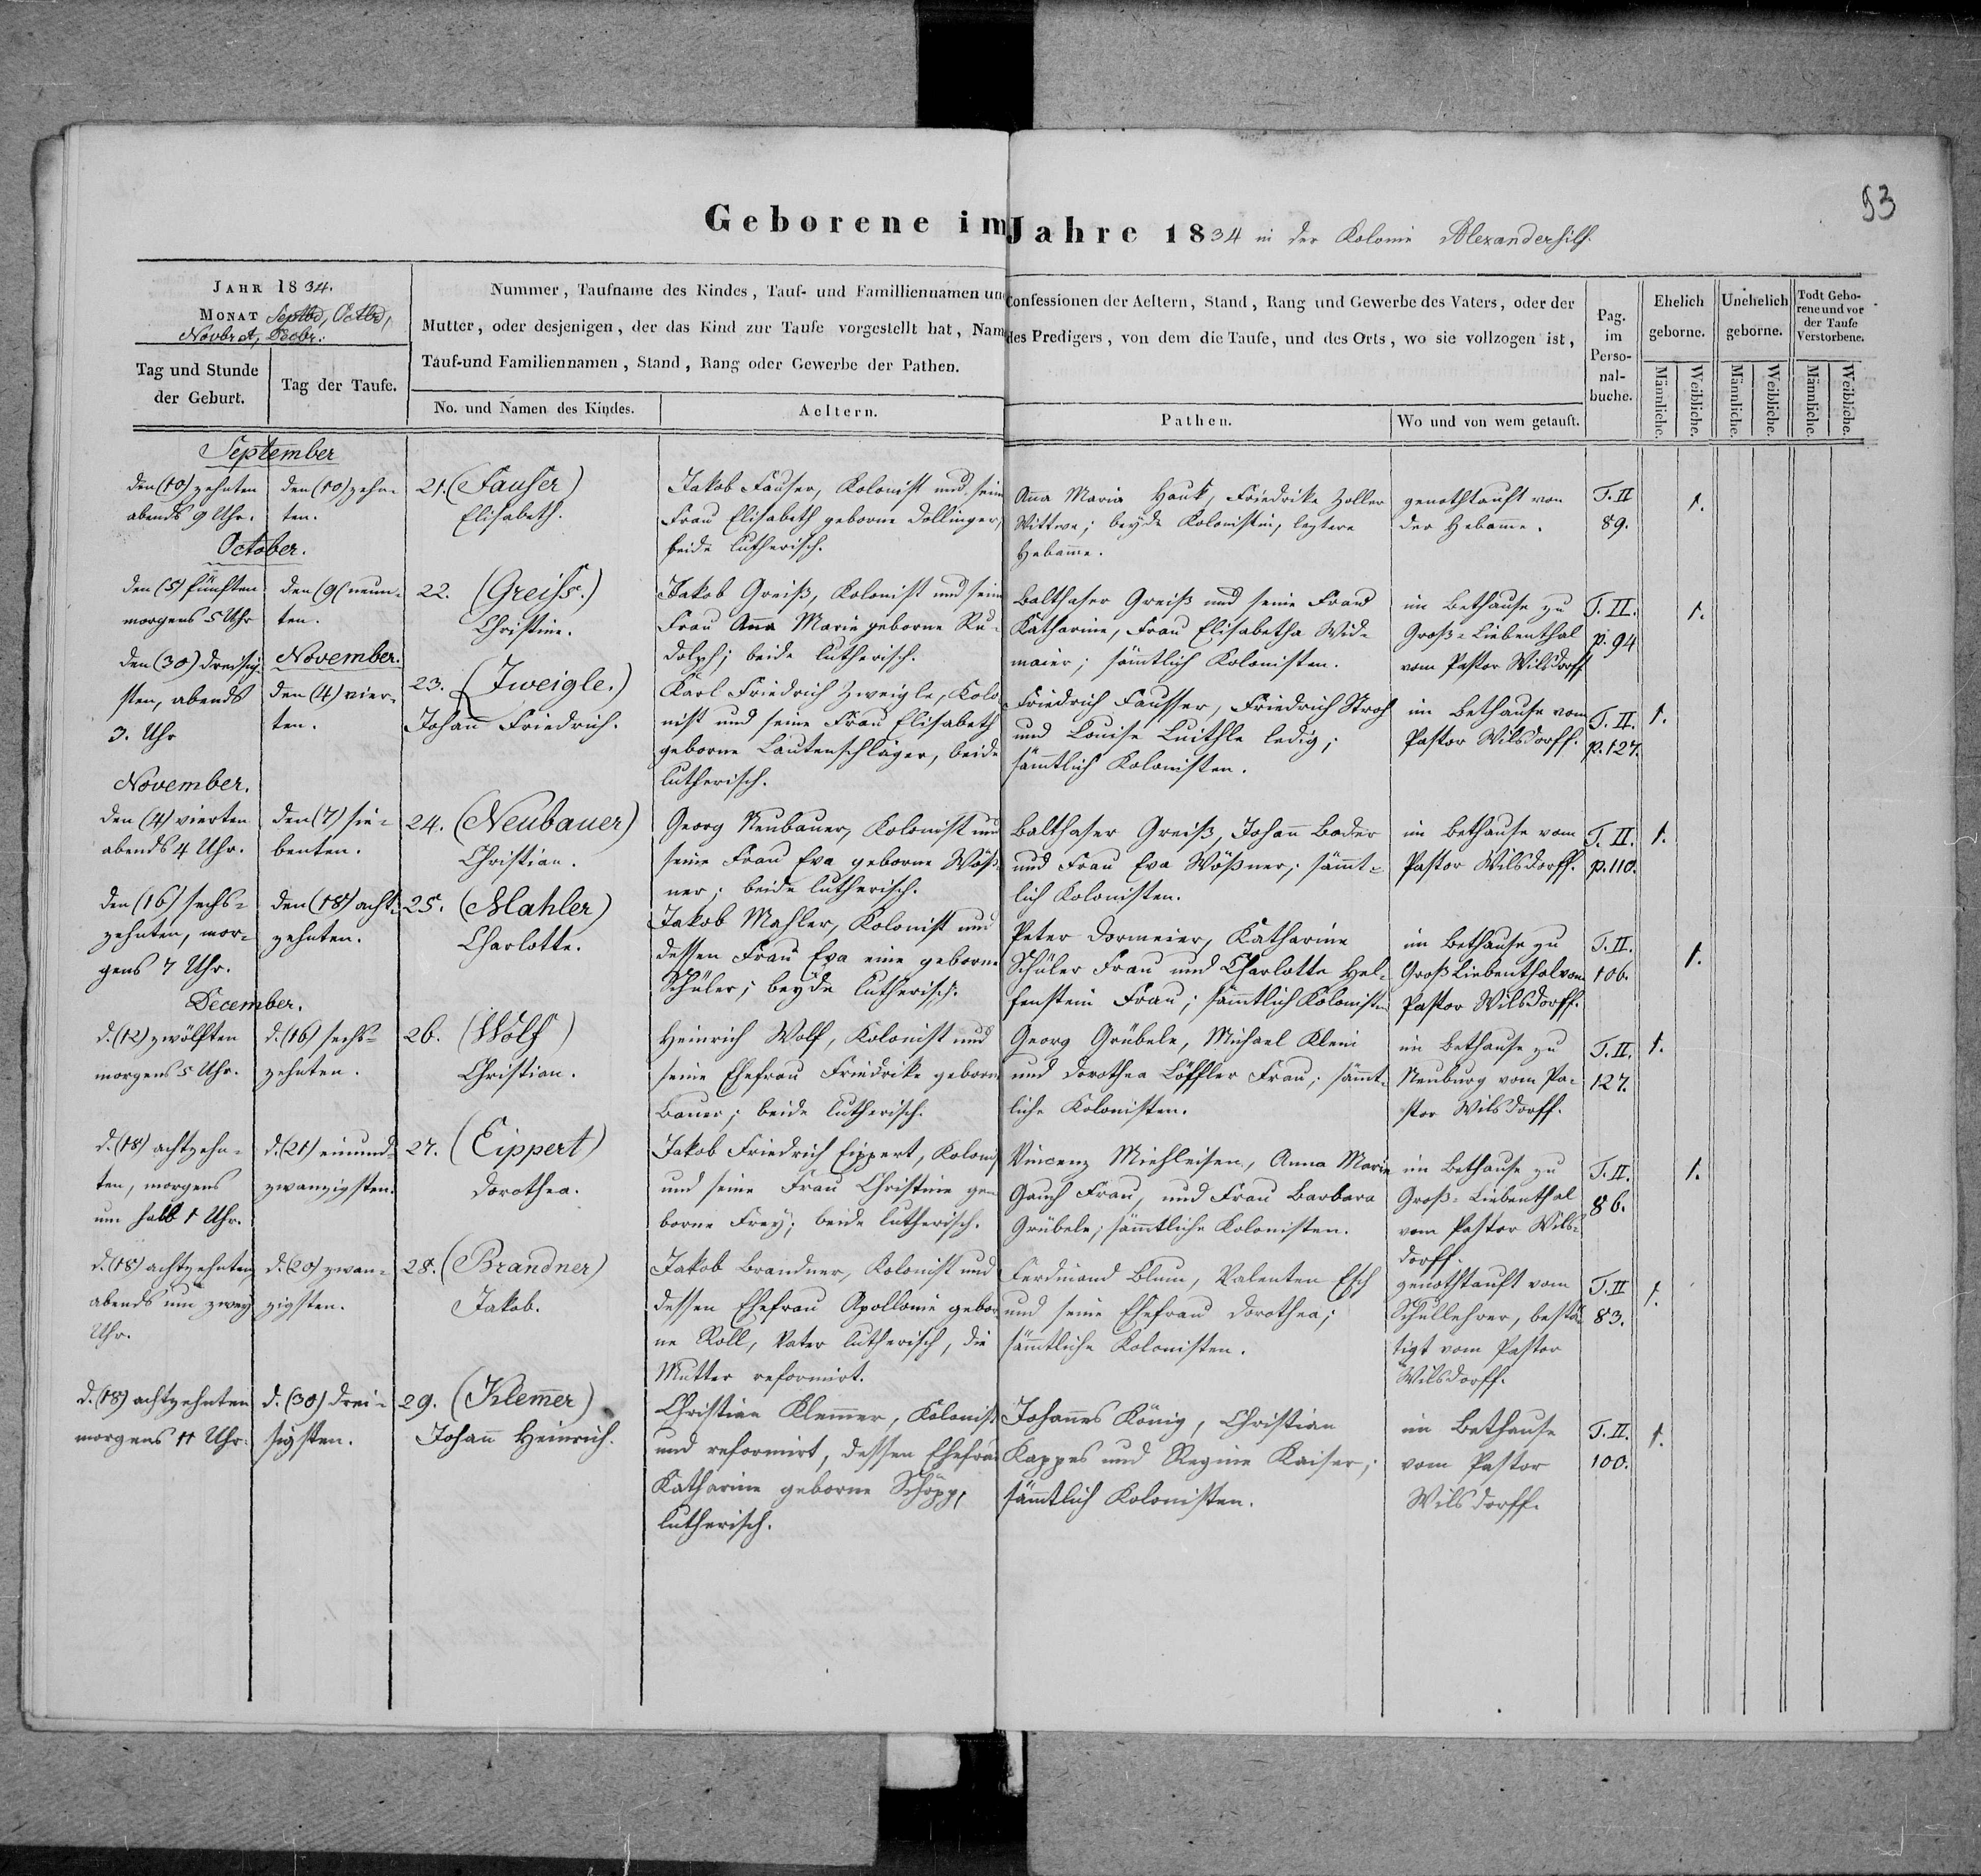 93
Geborene im Jahre 1834 in der Kolonie Alexanderhilf.
JAHR 1834.
MONAT Septbr, Octbr,
Novbr et, Decbr.
Tag und Stunde
der Geburt.
Tag der Taufe.
Nummer, Taufname des Kindes, Tauf- und Familliennamen und Confessionen der Aeltern, Stand, Rang und Gewerbe des Vaters, oder der
Mutter, oder desjenigen, der das Kind zur Taufe vorgestellt hat, Nam des Predigers, von dem die Taufe, und des Orts, wo sie vollzogen ist,
Tauf-und Familiennamen, Stand, Rang oder Gewerbe der Pathen.
No. und Namen des Kindes.
Aeltern.
Pathen.
Wo und von wem getauft.
Pag.
im
Perso-
nal-
buche.
Ehelich
geborne.
Unehelich
geborne.
Todt Gebo-
rene und vor
der Taufe
Verstorbene.
Männliche.
Weibliche.
Männliche.
Weibliche.
Männliche.
Weibliche.
September
den (10) zehnten
abends 9 Uhr.
den (10) zehn-
ten.
21. (Fauser)
Elisabeth.
Jakob Fauser, Kolonist und seine
Frau Elisabeth geborne Dollinger,
beide lutherisch.
Anna Maria Hauk, Friedrike Zoller
Wittwe; beyde Kolonisten, leztere
Hebamme.
genothtauft von
der Hebamme.
T. II
89.
1.
October.
den (5) fünften
morgens 5 Uhr
den (9) neun-
ten.
22. (Greiss.)
Christine.
Jakob Greiß, Kolonist und seine
Frau Anna Marie geborne Ru-
dolph; beide lutherisch.
Balthaser Greiß und seine Frau
Katharine, Frau Elisabetha Wid-
maier; sämmtlich Kolonisten.
im Bethause zu
Groß-Liebenthal
vom Pastor Wilsdorff
T. II.
p. 94
1.
den (30) dreißig-
sten, abends
3. Uhr
November.
den (4) vier-
ten.
23. (Zweigle.)
Johann Friedrich.
Karl Friedrich Zweigle, Kolo
nist und seine Frau Elisabeth
geborne Lautenschläger, beide
lutherisch.
Friedrich Fausser, Friedrich Stroh
und Louise Luithle ledig;
sämmtlich Kolonisten.
im Bethause vom
Pastor Wilsdorff.
T. II.
p. 127.
1.
November.
den (4) vierten
abends 4 Uhr.
den (7) sie-
benten.
24. (Neubauer)
Christian.
Georg Neubauer, Kolonist und
seine Frau Eva geborne Wöß-
ner; beide lutherisch.
Balthaser Greiß, Johann Bader
und Frau Eva Wößner; sämmt-
lich Kolonisten.
im Bethause vom
Pastor Wilsdorff.
T. II.
p. 110.
1.
den (16) sechs-
zehnten, mor-
gens 7 Uhr.
den (18) acht-
zehnten.
25. (Mahler)
Charlotte.
Jakob Mahler, Kolonist und
dessen Frau Eva eine geborne
Schüler; beyde lutherisch.
Peter Dormeier, Katharine
Schüler Frau und Charlotte Hel-
fenstein Frau; sämmtlich Kolonisten
im Bethause zu
Groß Liebenthal vom
Pastor Wilsdorff.
T. II.
106.
1.
December.
d. (12) zwölften
morgens 5 Uhr.
d. (16) sechs-
zehnten.
26. (Wolf)
Christian.
Heinrich Wolf, Kolonist und
seine Ehefrau Friedrike geborne
Bauer; beide lutherisch.
Georg Grübele, Michael Klein
und Dorothea Löffler Frau; sämmt-
liche Kolonisten.
im Bethause zu
Neuburg vom Pa-
stor Wilsdorff.
T. II.
127.
1.
d. (18) achtzehn-
ten, morgens
um halb 1 Uhr.
d. (21) einund-
zwanzigsten.
27. (Eippert)
Dorothea.
Jakob Friedrich Eippert, Kolonis
und seine Frau Christine ge-
borne Frey; beide lutherisch.
Vincenz Miehleisen, Anna Marie
Gauch Frau, und Frau Barbara
Grübele; sämmtliche Kolonisten.
im Bethause zu
Groß-Liebenthal
vom Pastor Wils-
dorff.
T. II.
86.
1.
d. (18) achtzehnten,
abends um zwey
Uhr.
d. (20) zwan-
zigsten.
28. (Brandner)
Jakob.
Jakob Brandner, Kolonist und
dessen Ehefrau Apollonie gebor
ne Roll, Vater lutherisch, die
Mutter reformirt.
Ferdinand Blum, Valenten Esch
und seine Ehefrau Dorothea;
sämmtliche Kolonisten.
genothtauft vom
Schullehrer, bestä-
tigt vom Pastor
Wilsdorff.
T. II
83.
1.
d. (18) achtzehnten
morgens 11 Uhr.
d. (30) drei-
sigsten.
29. (Klemmer)
Johann Heinrich.
Christian Klemmer, Kolonist
und reformirt, dessen Ehefrau
Katharine geborne Schöpp,
lutherisch.
Johannes König, Christian
Kappes und Regine Kaiser;
sämmtlich Kolonisten.
im Bethause
vom Pastor
Wilsdorff.
T. II.
100.
1.